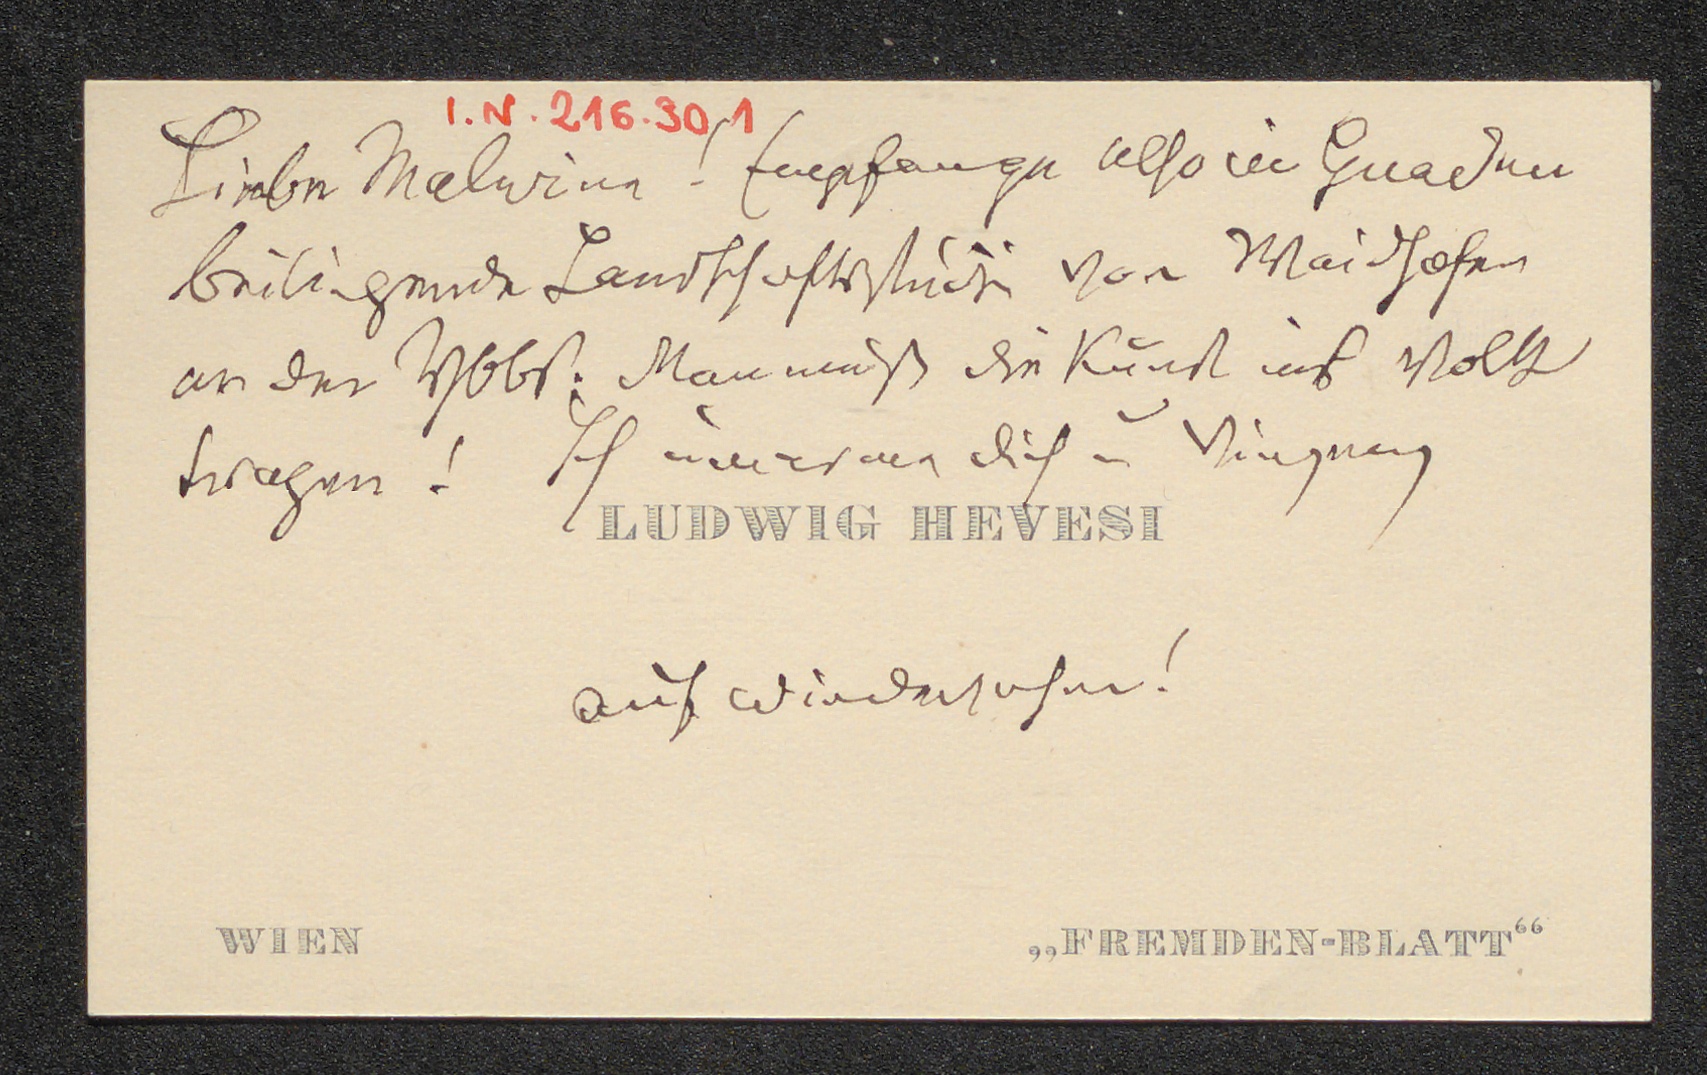 I.N. 216.301
Liebe Malwine! Empfange also in Gnaden
beiliegende Landschaftsstudie von Waidhofen
an der Ybbs. Man muß die Kunst ins Volk
tragen! Ich umarme dich u
LUDWIG HEVESI
auf Wiedersehen!
WIEN
„FREMDEN-BLATT“